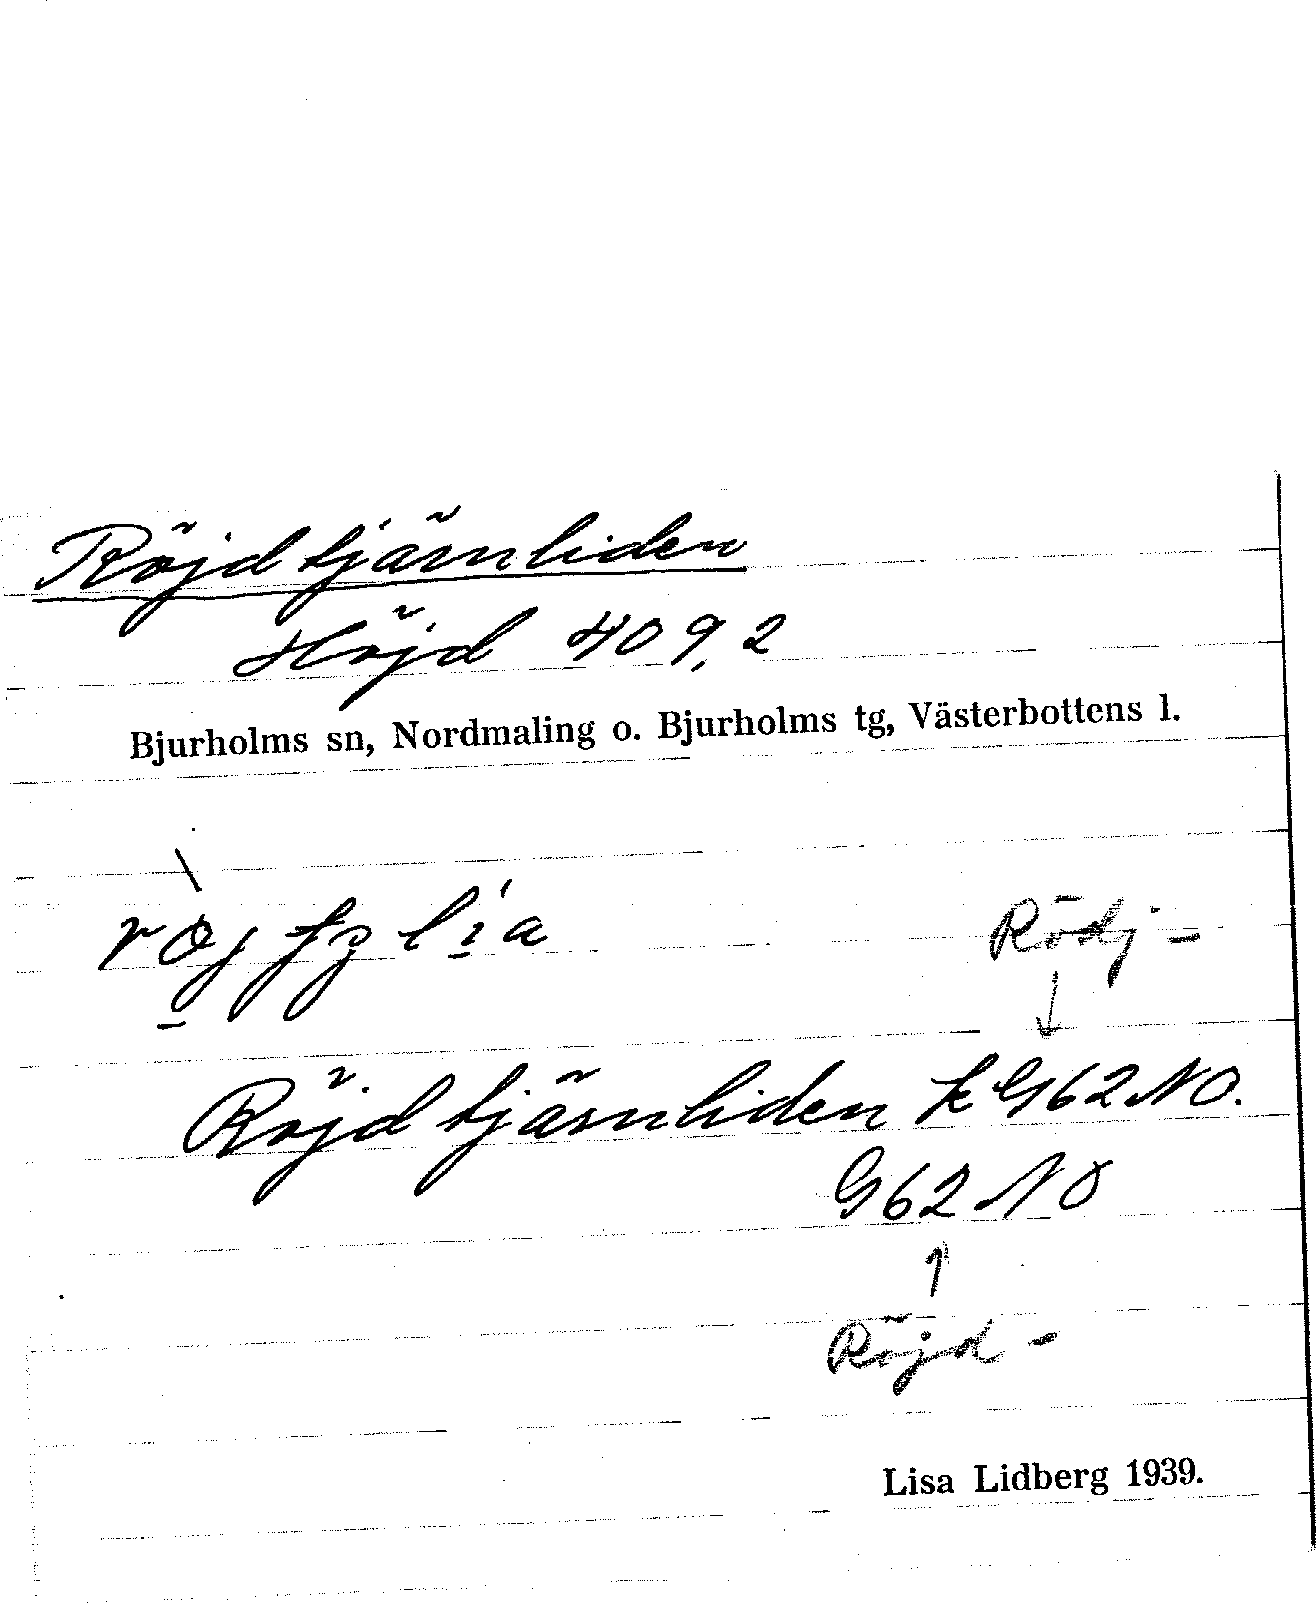 Röjdtjärnliden
Höjd 409,2
Bjurholms sn, Nordmaling o. Bjurholms tg, Västerbottens l.
Rödj-
↓
Röjdtjärnliden k G62NO.
G62NO
↑
Röjd-
Lisa Lidberg 1939.